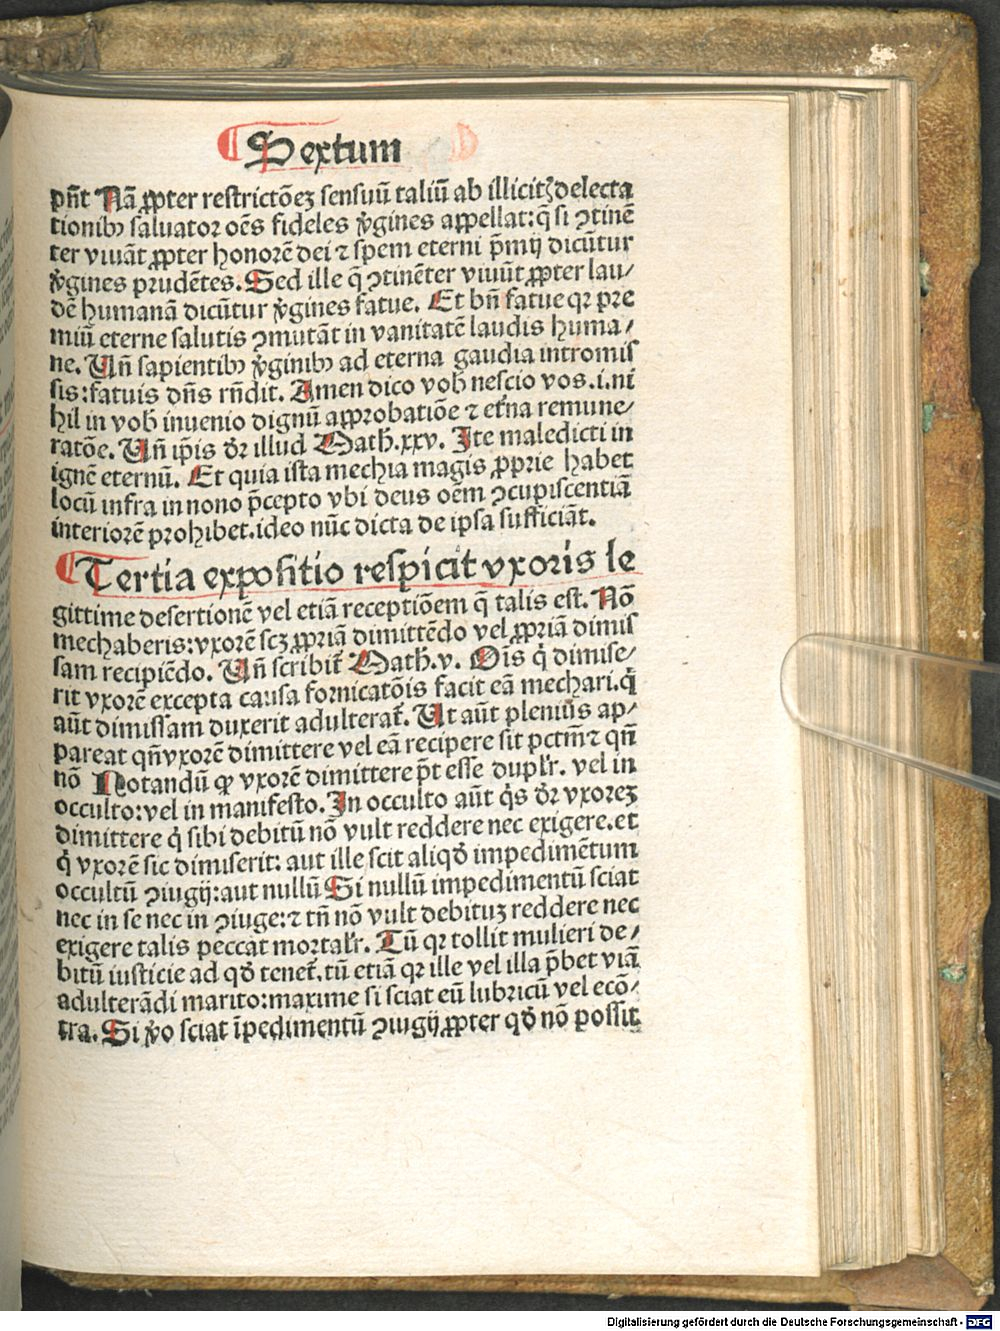 Sextum
pñt Nã ꝓpter restrictõeꝫ sensuũ taliũ ab illicitꝭ delecta
tionibꝰ saluator oẽs fideles v̾gines appellat: q̃ si ꝯtinẽ
ter viuãt ꝓpter honorẽ dei ⁊ spem eterni p̃mij dicũtur
v̾gines prudẽtes. Sed ille q̃ ꝯtinẽter viuũt ꝓpter lau⸗
dẽ humanã dicũtur v̾gines fatue. Et bñ fatue qꝛ pre
miũ eterne salutis ꝯmutãt in vanitatẽ laudis huma⸗
ne. Uñ sapientibꝰ v̾ginibꝰ ad eterna gaudia intromis
sis: fatuis dñs rñdit. Amen dico vob̃ nescio vos .i. ni
hil in vob̃ inuenio dignũ approbatiõe ⁊ et̾na remune⸗
ratõe. Uñ ip̃is dr̃ illud Math. xxv. Ite maledicti in
ignẽ eternũ. Et quia ista mechia magis ꝓprie habet
locũ infra in nono p̃cepto vbi deus oẽm ꝯcupiscentiã
interiorẽ prohibet. ideo nũc dicta de ipsa sufficiãt.
Tertia expositio respicit vxoris le
gittime desertionẽ vel etiã receptiõem q̃ talis est. Nõ
mechaberis: vxorẽ scꝫ ꝓpriã dimittẽdo vel ꝓpriã dimis
sam recipiẽdo. Uñ scribit̃ Math. v. Oĩs q̇ dimise⸗
rit vxorẽ excepta causa fornicatõis facit eã mechari. q̇
aũt dimissam duxerit adulterat̃. Ut aũt pleniꝰs ap⸗
pareat qñ vxorẽ dimittere vel eã recipere sit pctm̃ ⁊ qñ
nõ Notandũ ꝙ vxorẽ dimittere p̃t esse duplr̃. vel in
occulto: vel in manifesto. In occulto aũt q̇s dr̃ vxoreꝫ
dimittere q̇ sibi debitũ nõ vult reddere nec exigere. et
q̇ vxorẽ sic dimiserit: aut ille scit aliqd̃ impedimẽtum
occultũ ꝯiugij: aut nullũ Si nullũ impedimentũ sciat
nec in se nec in ꝯiuge: ⁊ tñ nõ vult debituꝫ reddere nec
exigere talis peccat mortalr̃. Tũ qꝛ tollit mulieri de⸗
bitũ iusticie ad qd̃ tenet̃. tũ etiã qꝛ ille vel illa p̃bet viã
adulterãdi marito: maxime si sciat eũ lubricũ vel ecõ⸗
tra. Si v̾o sciat ĩpedimentũ ꝯiugij ꝓpter qd̃ nõ possit
Digitalisierung gefördert durch die Deutsche Forschungsgemeinschaft - DFG